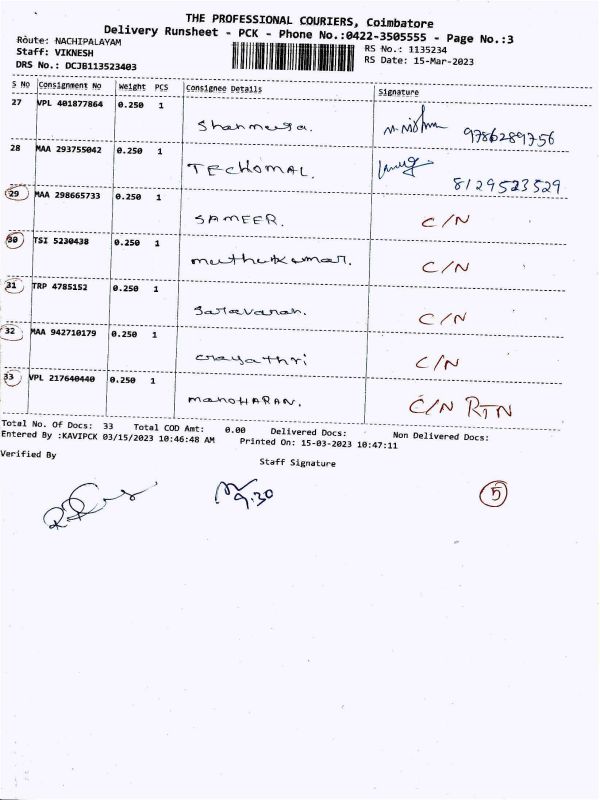 THE PROFESSIONAL COURIERS, Coimbatore
Delivery Runsheet - PCK - Phone No.:0422-3505555 - Page No.:3
Route: NACHIPALAYAM
RS No.: 1135234
Staff: VIKNESH
RS Date: 15-Mar-2023
DRS No.: DCJB113523403
S No Consignment No Weight PCS Consignee Details Signature
27 VPL 401877864 0.250 1
9786289756
28 MAA 293755042 0.250 1
TECHOMAL.
8129523529
29 MAA 298665733 0.250 1
SAMEER. C/N
30 TSI 5230438 0.250 1
muthukumar. C/N
31 TRP 4785152 0.250 1
Saravanan. C/N
32 MAA 942710179 0.250 1
Gayathri C/N
33 VPL 217640440 0.250 1
manoHARAN. C/N RTN
Total No. Of Docs: 33 Total COD Amt: 0.00 Delivered Docs: Non Delivered Docs:
Entered By :KAVIPCK 03/15/2023 10:46:48 AM Printed On: 15-03-2023 10:47:11
Verified By
Staff Signature
9.30
5